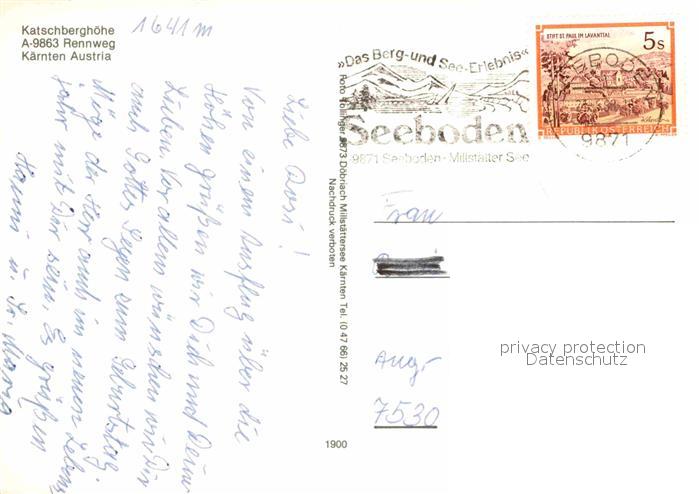 Katschberghöhe
A-9863 Rennweg
Kärnten Austria
1641 m
Liebe Dori!
Von einem Ausflug über die
Höhen grüßen wir Dich und Deine
Lieben. Vor allem wünschen wir Dir
auch Gottes Segen zum Geburtstag.
Möge der Herr auch im neuen Lebens
jahr mit Dir sein. Es grüßen
Hanni u. Sr. Maria
Foto Tollinger 9873 Döbriach Millstättersee Kärnten Tel. (0 47 66) 25 27
Nachdruck verboten
1900
»Das Berg- und See-Erlebnis«
Seeboden
9871 Seeboden - Millstätter See
STIFT ST. PAUL IM LAVANTTAL
5 s
REPUBLIK ÖSTERREICH
SEEBODEN
9871
Frau
7530
privacy protection
Datenschutz